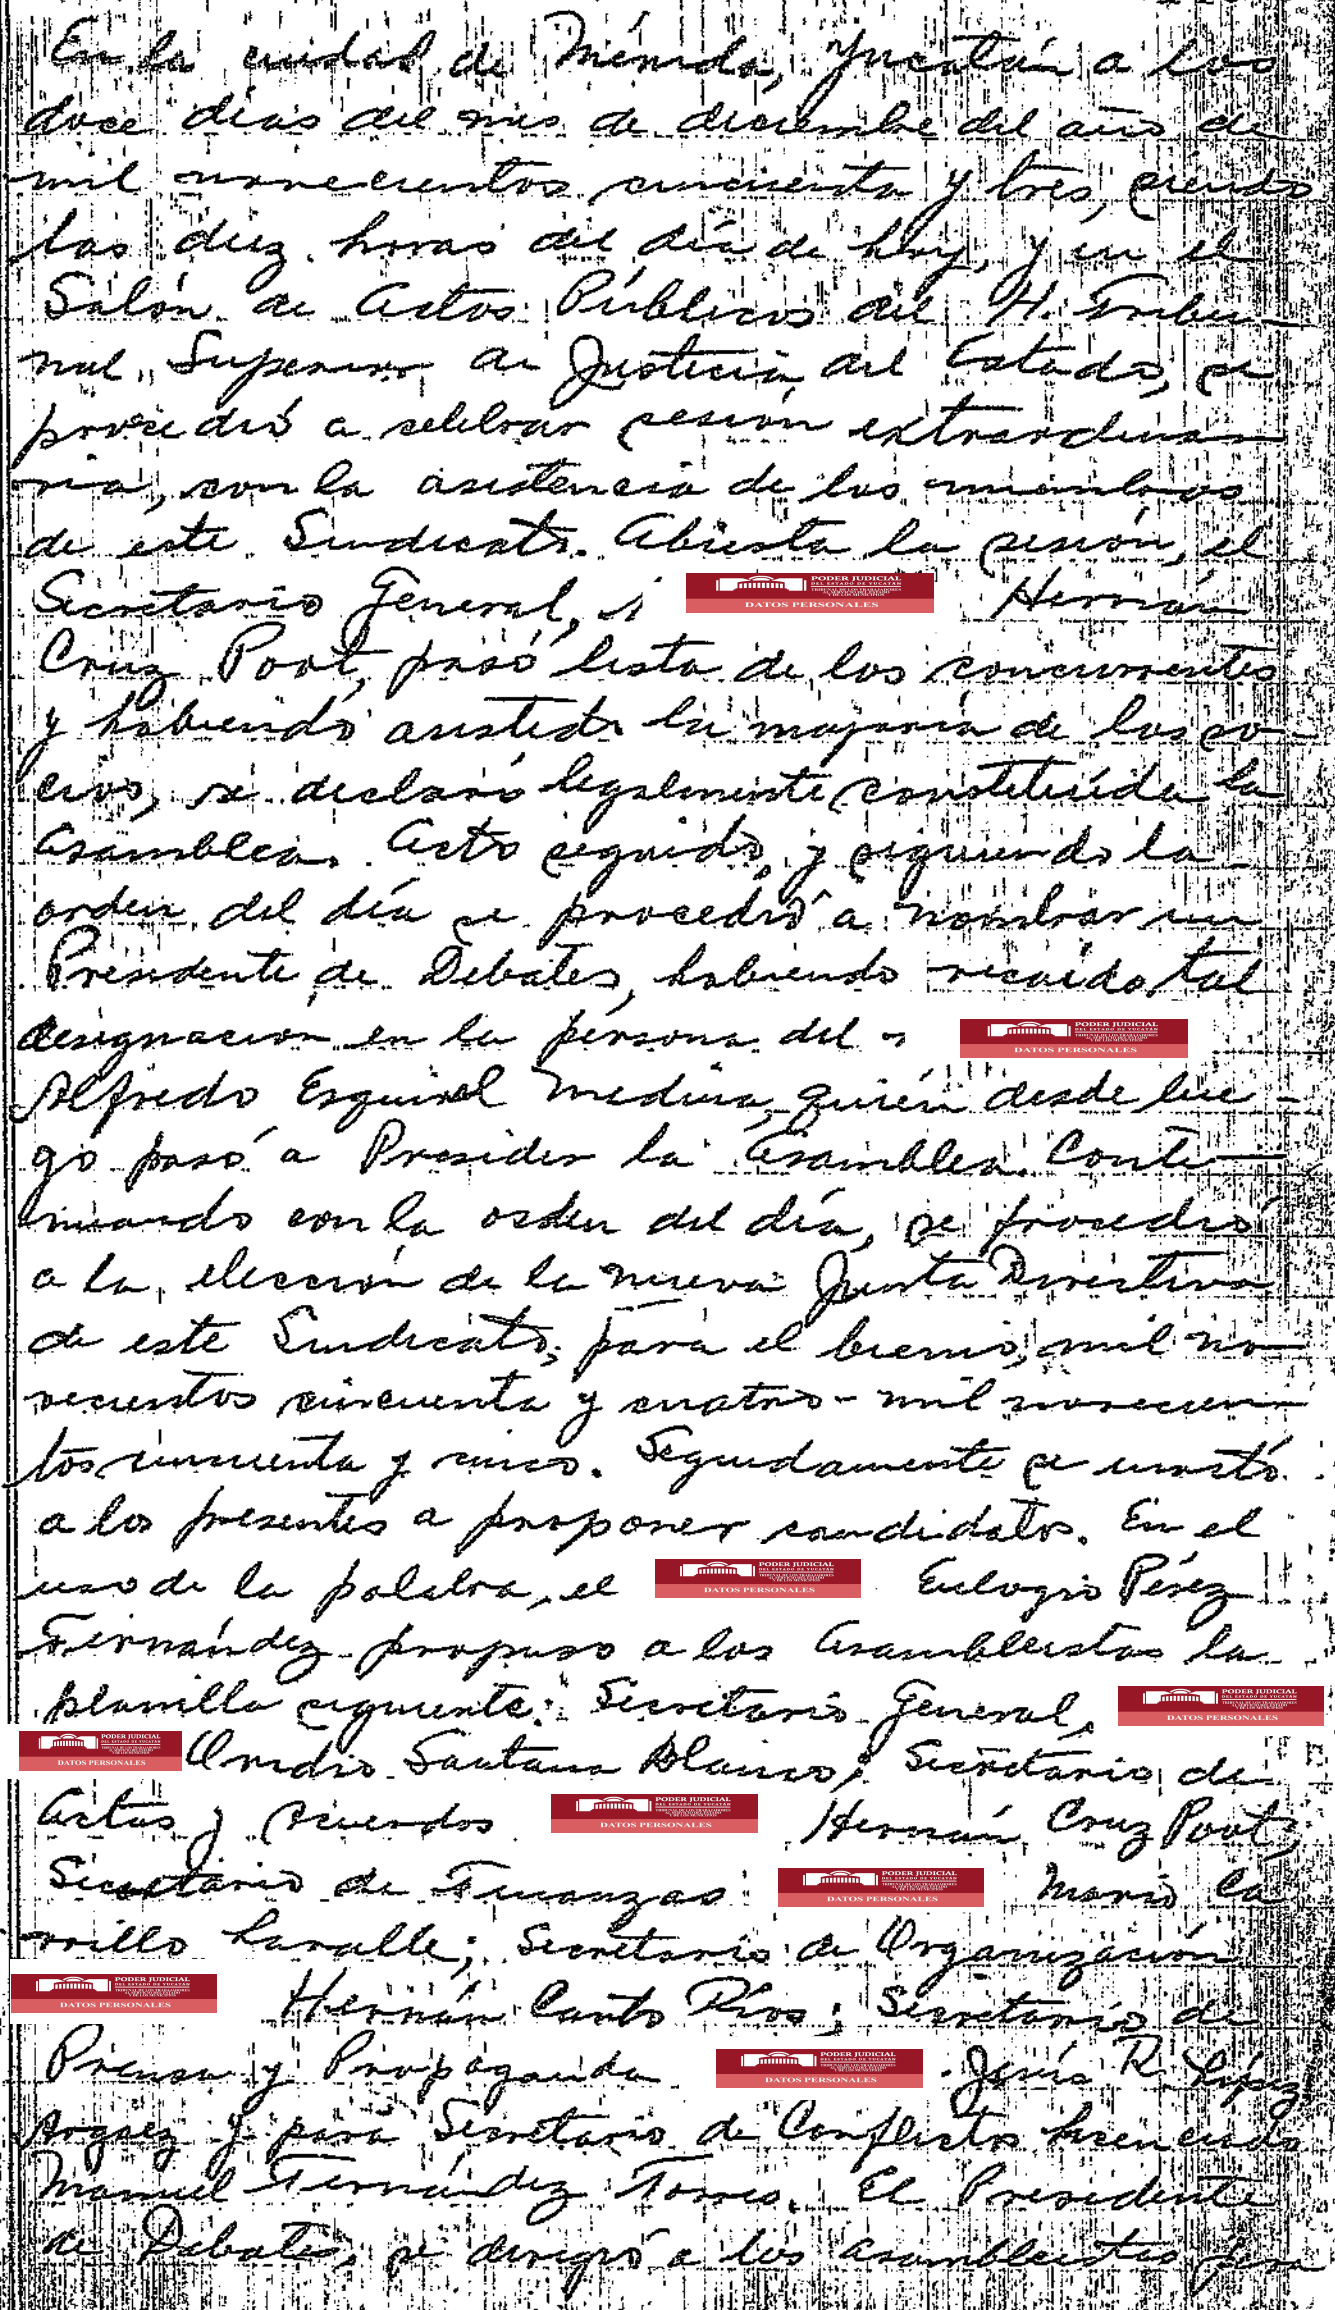 En la ciudad de Mérida, Yucatán a los
doce días del mes de diciembre del año de
mil novecientos cincuenta y tres, siendo
las diez horas del día de hoy, y en el
Salón de Actos Públicos del H. Tribu-
nal Superior de Justicia del Estado, se
procedió a celebrar sesión extraordina-
ria, con la asistencia de los miembros
de este Sindicato. Abierta la sesión, el
Secretario General, PODER JUDICIAL DEL ESTADO DE YUCATÁN DATOS PERSONALES Hernán
Cruz Poot, pasó lista de los concurrentes
y habiendo asistido la mayoría de los so-
cios, se declaró legalmente constituída la
Asamblea. Acto seguido, y siguiendo la
orden del día se procedió a nombrar un
Presidente de Debates, habiendo recaído tal
designacion en la persona del PODER JUDICIAL DEL ESTADO DE YUCATÁN DATOS PERSONALES
Alfredo Esquivel Medina, quién desde lue-
go pasó a Presidir la Asamblea. Conti-
nuando con la orden del día, se procedió
a la elección de la nueva Junta Directiva
de este Sindicato, para el bienio, mil no-
vecientos cincuenta y cuatro - mil novecien-
tos cincuenta y cinco. Seguidamente se invitó
a los presentes a proponer candidatos. En el
uso de la palabra, el PODER JUDICIAL DEL ESTADO DE YUCATÁN DATOS PERSONALES Eulogio Pérez
Fernández propuso a los Asambleistas la
planilla siguiente: Secretario General, PODER JUDICIAL DEL ESTADO DE YUCATÁN DATOS PERSONALES
PODER JUDICIAL DEL ESTADO DE YUCATÁN DATOS PERSONALES Ovidio Santana Blanco; Secretario de
Actas y Acuerdos PODER JUDICIAL DEL ESTADO DE YUCATÁN DATOS PERSONALES Hernán Cruz Poot;
Secretario de Finanzas PODER JUDICIAL DEL ESTADO DE YUCATÁN DATOS PERSONALES Mario Ca
rrillo Lavalle; Secretario de Organización
PODER JUDICIAL DEL ESTADO DE YUCATÁN DATOS PERSONALES Hernán Canto Ríos; Secretario de
Prensa y Propaganda PODER JUDICIAL DEL ESTADO DE YUCATÁN DATOS PERSONALES Jesús R. López
Argaez y para Secretario de Conflictos licenciado
Manuel Fernández Torres. El Presidente
de Debates, se dirigió a los asambleistas para